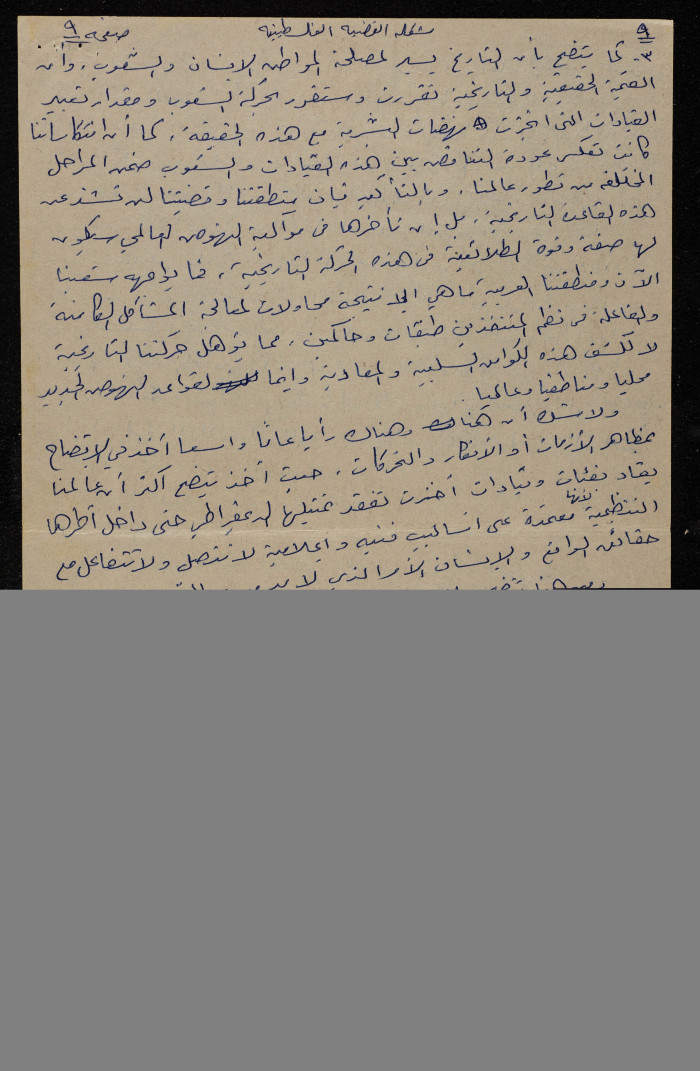 ٩ مشكلة القضية الفلسطينية صفحة ٩
٣. كما يتضح بأن التاريخ يسير لمصلحة المواطن الإنسان والشعوب، وأن
القيمة الحقيقية والتاريخية تقررت وستقرر بحركة الشعوب ومقدار تعبير
القيادات التي انجزت نهضات البشرية مع هذه الحقيقة، كما أن انتكاساتنا
كانت تعكس عودة التناقض بين هذه القيادات والشعوب ضمن المراحل
المختلفة من تطور عالمنا، وبالتأكيد فإن منطقتنا وقضيتنا لن تشذ عن
هذه القاعدة التاريخية، بل إن تأخرها في مواكبة النهوض العالمي سيكون
لها صفة وقوة الطلائعية في هذه الحركة التاريخية، فما يواجهه شعبنا
الآن ومنطقتنا العربية ما هي إلا نتيجة محاولات لمعالجة المشاكل الكامنة
والفاعلة في نظم المتنفذين طبقات وحاكمين، مما يؤهل حركتنا التاريخية
لا لكشف هذه الكوامن السلبية والمعادية وإنما لقواعد النهوض الجديد
محليا ومناطقيا وعالميا
ولا شك أن هناك وهناك رأيا عاما واسعا أخذ في الاتضاح
بمظاهر الأزمات أو الأفكار والتحركات، حيث أخذ يتضح أكثر أن عالمنا
يقاد بفئات وقيادات أخذت تفقد تمثيلها الديمقراطي حتى داخل أطرها
التنظيمية لأنها معتمدة على أساليب فنيه وإعلامية لا تتصل ولا تتفاعل مع
حقائق الواقع والإنسان الأمر الذي لا بد